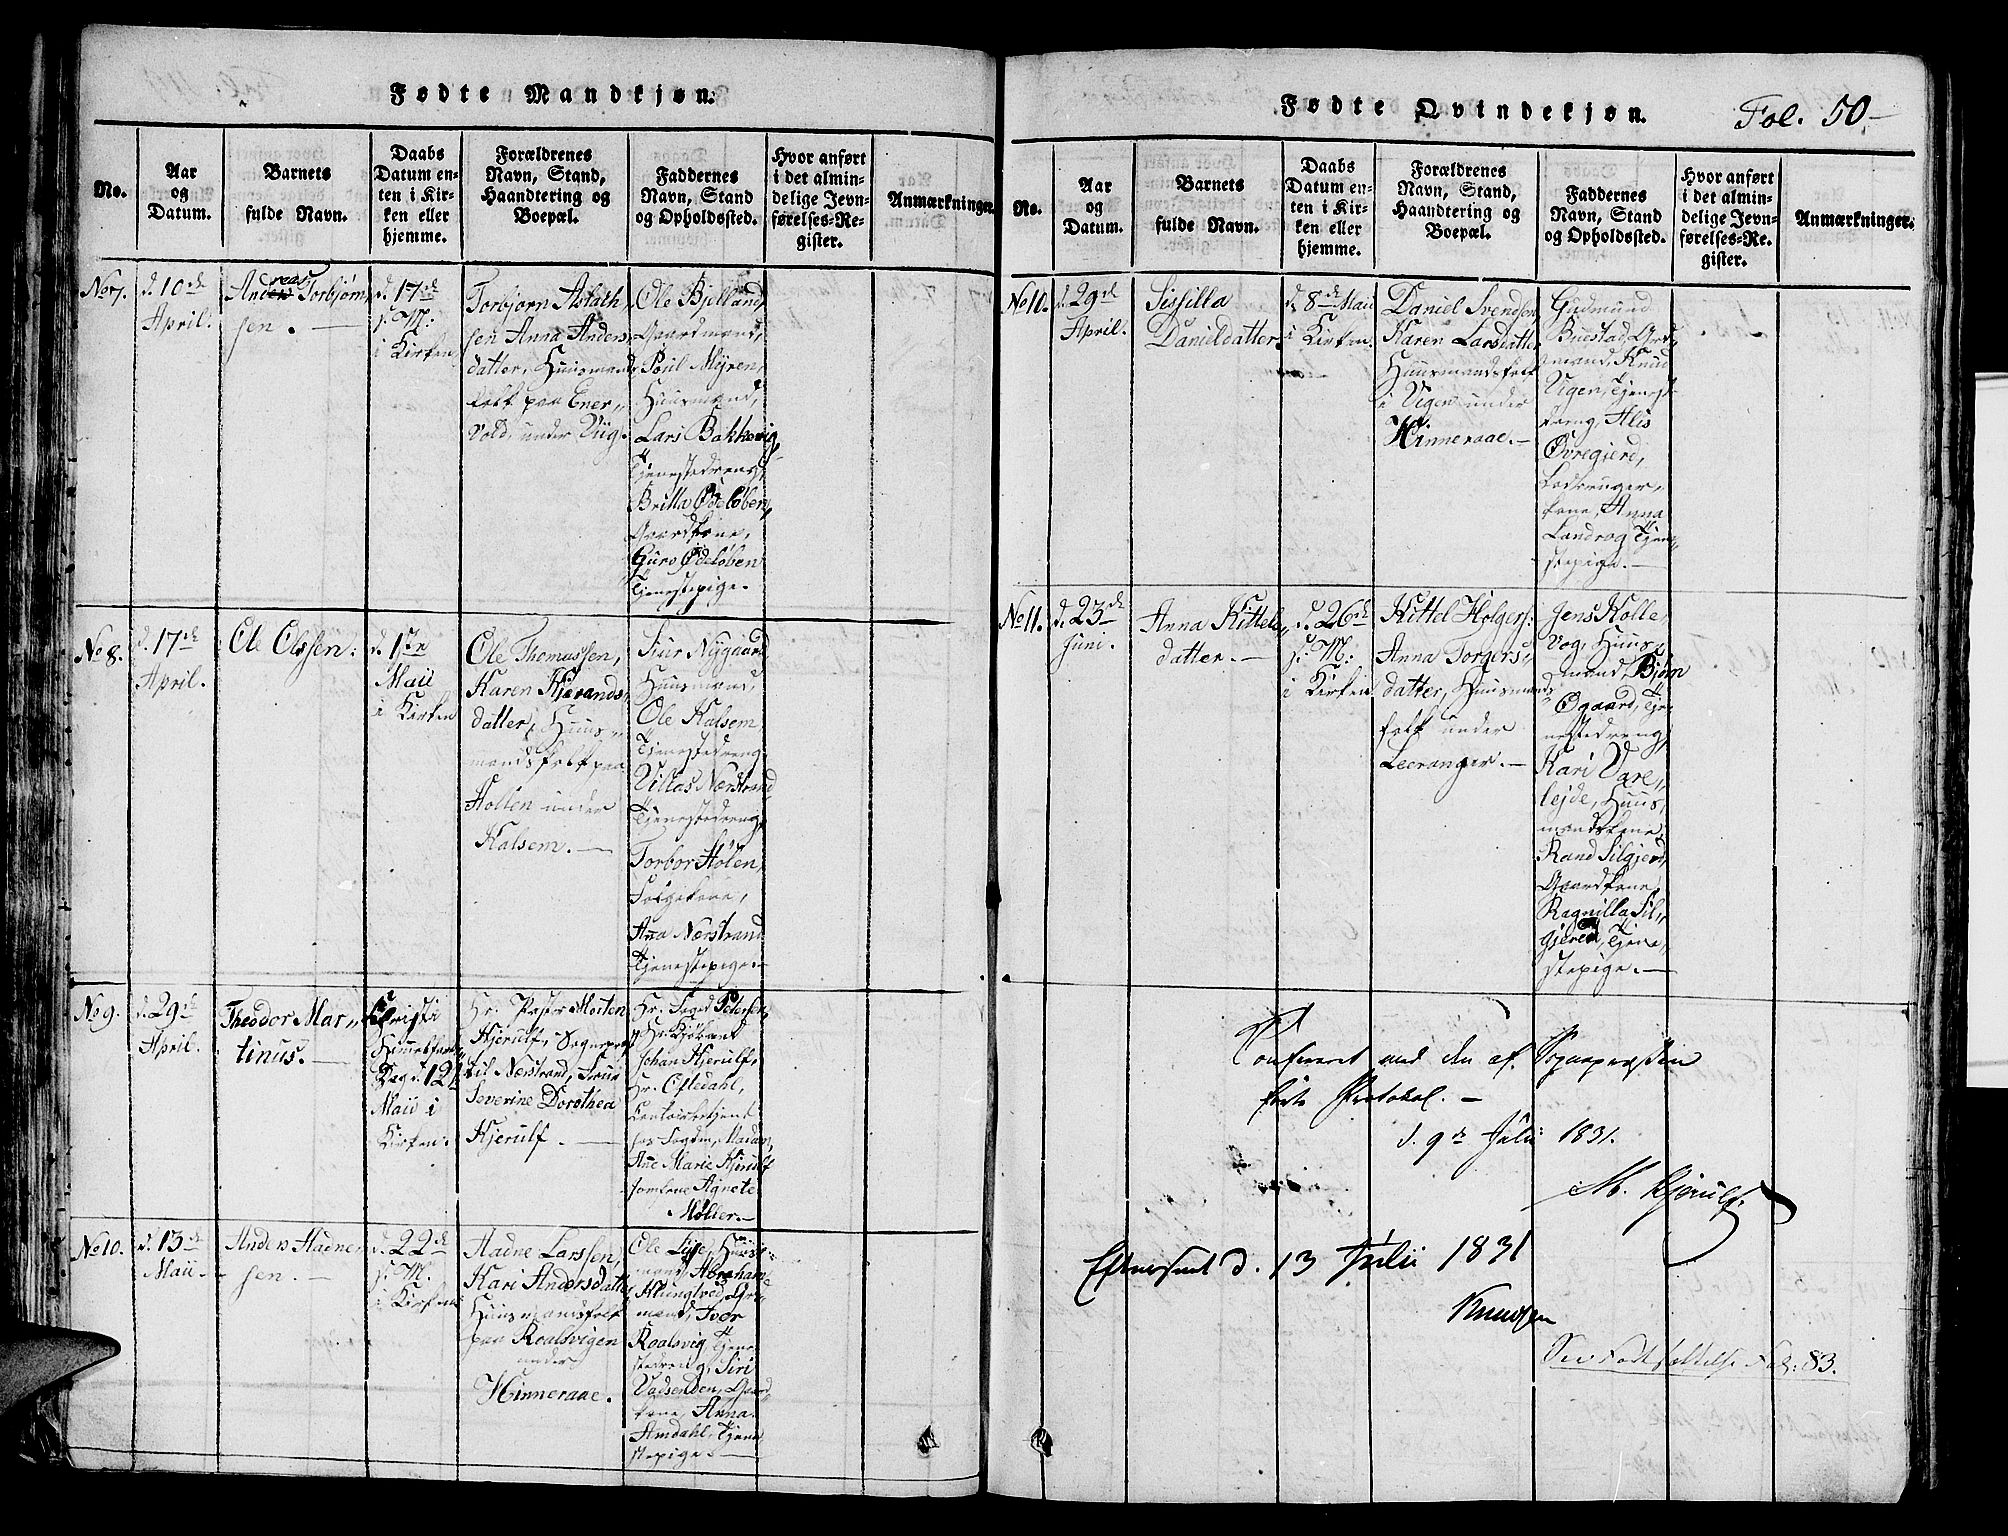 Fødte Mandkjøn.
No.
Aar
og
Datum.
Barnets
fulde Navn.
Daabs
Datum en-
ten i Kir-
ken eller
hjemme.
Forældrenes
Navn, Stand,
Haandtering og
Boepæl.
Faddernes
Navn, Stand
og Opholdssted.
Hvor anført
i det almin-
delige Jevn-
førelses-Re-
gister.
Anmærkninger.
No 7.
d. 10de
April.
Andreas Torbjørn-
sen. —
d. 17de
s. M:
i Kirken
Torbjorn Aslach
sen Anna Anders,
datter, Huusmands
folk paa Ener„
vold, under Viig.
Ole Bjelland,
Gaardmand,
Poul Myren,
Huusmand,
Lars Bakkevig,
Tjenestedreng,
Britta Ødeløben,
Gaardkone,
Guro Ødeløben
Tjenestepige.
No 8.
d. 17de
April.
Ole Olssen:
d. 1ste
Maii
i Kirken
Ole Thomassen,
Karen Kjerands,
datter, Huus„
mandsfolk paa
Hollen under
Kalsem. —
Siur Nygaard
Huusmand,
Ole Kalsem
Tjenestedreng
Villas Nærstrand
Tjenestedreng,
Torbor Hølen,
Folgekone,
Anna Nærstrand
Tjenestepige. —
No 9.
d. 29de
April.
Theodor Mar„
tinus. —
Christi
Himmelfarts
Dag d. 12te
Maii i
Kirken.
Hr. Pastor Morten
Kjerulf, Sogneprest
til Nærstrand, Frue
Severine Dorothea
Kjerulf. —
Hr. Foged Petersen,
Johan Kjerulf,
Hr. Oftedahl,
Contoirbetjent
hos Fogden, Madam
Ane Marie Kjerulf
Jomfrue Agnete
Møller. —
No 10.
d. 13de
Maii. —
Anders Aadne-
sen. —
d. 22de
s. M.
i Kirken
Aadne Larssen,
Kari Andersdatter
Huusmandsfolk
paa Roalsvigen
under
Hinneraae.
Ole Lye, Huus-
mand, Abraham
Aungtved, Gr-
mand, Iver
Roalsvig, Tjene
stedreng, Siri
Vadsenden, Gaard
kone, Anna
Amdahl, Tjene
stepige. —
Fødte Qvindekjøn.
Fol. 50 —
No.
Aar
og
Datum.
Barnets
fulde Navn.
Daabs
Datum en-
ten i Kir-
ken eller
hjemme.
Forældrenes
Navn, Stand,
Haandtering og
Boepæl.
Faddernes
Navn, Stand
og Opholdssted.
Hvor anført
i det almin-
delige Jevn-
førelses-Re-
gister.
Anmærkninger.
No 10.
d. 29de
April.
Sissilla
Danieldatter.
d. 8de Maii
i Kirken.
Daniel Svendsen,
Karen Larsdatter,
Huusmandsfolk
i Vigen under
Hinneraae. —
Gudmund
Buestad, Grd
mand, Knud
Vigen, Tjenest
dreng, Alis
Øvregjerd,
kone, Anna
Landrog Tjene„
stepige. —
No 11.
d. 23de
Juni.
Anna Kittels„
datter. —
d. 26de
s. M:
i Kirken
Kittel Holgers:
Anna Torgers„
datter, Huusmands
folk under
Leeranger. —
Jens Kolle„
vog, Huus„
mand, Bjørn
Øgaard, Tje„
nestedreng,
Kari Vare„
lejde, Huus„
mandskone
Rand Silgjerd,
Gaardkone,
Ragnilla Sil„
gjerd, Tjene„
stepige. —
Confereret med den af Sognepræsten
førte Protokol. —
d. 9de Julii 1831.
M. Kjerulf.
Efterseet d. 13 Julii 1831
Knudsen
See Fortsættelse Fol: 83.